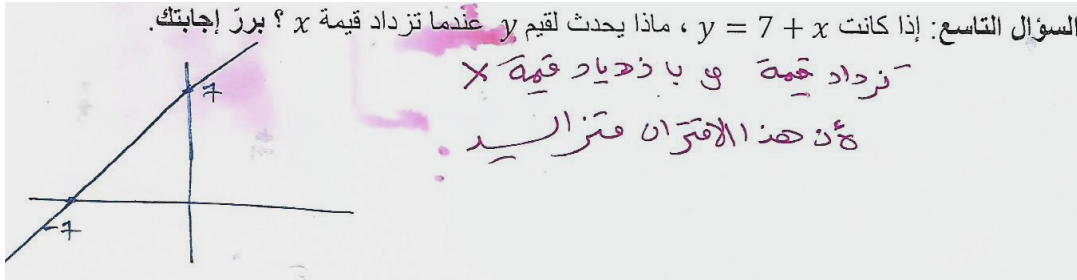 السؤال التاسع: إذا كانت y = 7 + x ، ماذا يحدث لقيم y عندما تزداد قيمة x ؟ برّر إجابتك.
تزداد قيمة y بازدياد قيمة x
لأن هذا الاقتران متزايد
7
-7